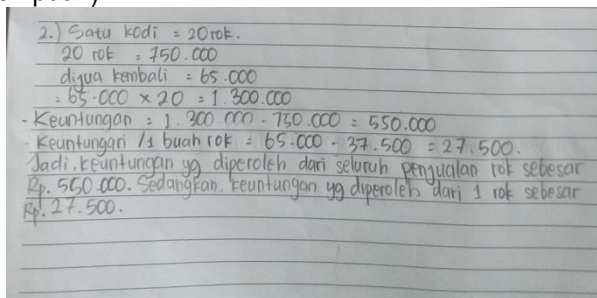 2.) Satu kodi = 20 rok.
20 rok = 750.000
dijua kembali = 65.000
= 65.000 × 20 = 1.300.000
- Keuntungan = 1.300 000 - 750.000 = 550.000
- Keuntungan /1 buah rok = 65.000 - 37.500 = 27.500.
Jadi, keuntungan yg diperoleh dari seluruh penjualan rok sebesar
Rp. 550.000. Sedangkan, keuntungan yg diperoleh dari 1 rok sebesar
Rp. 27.500.